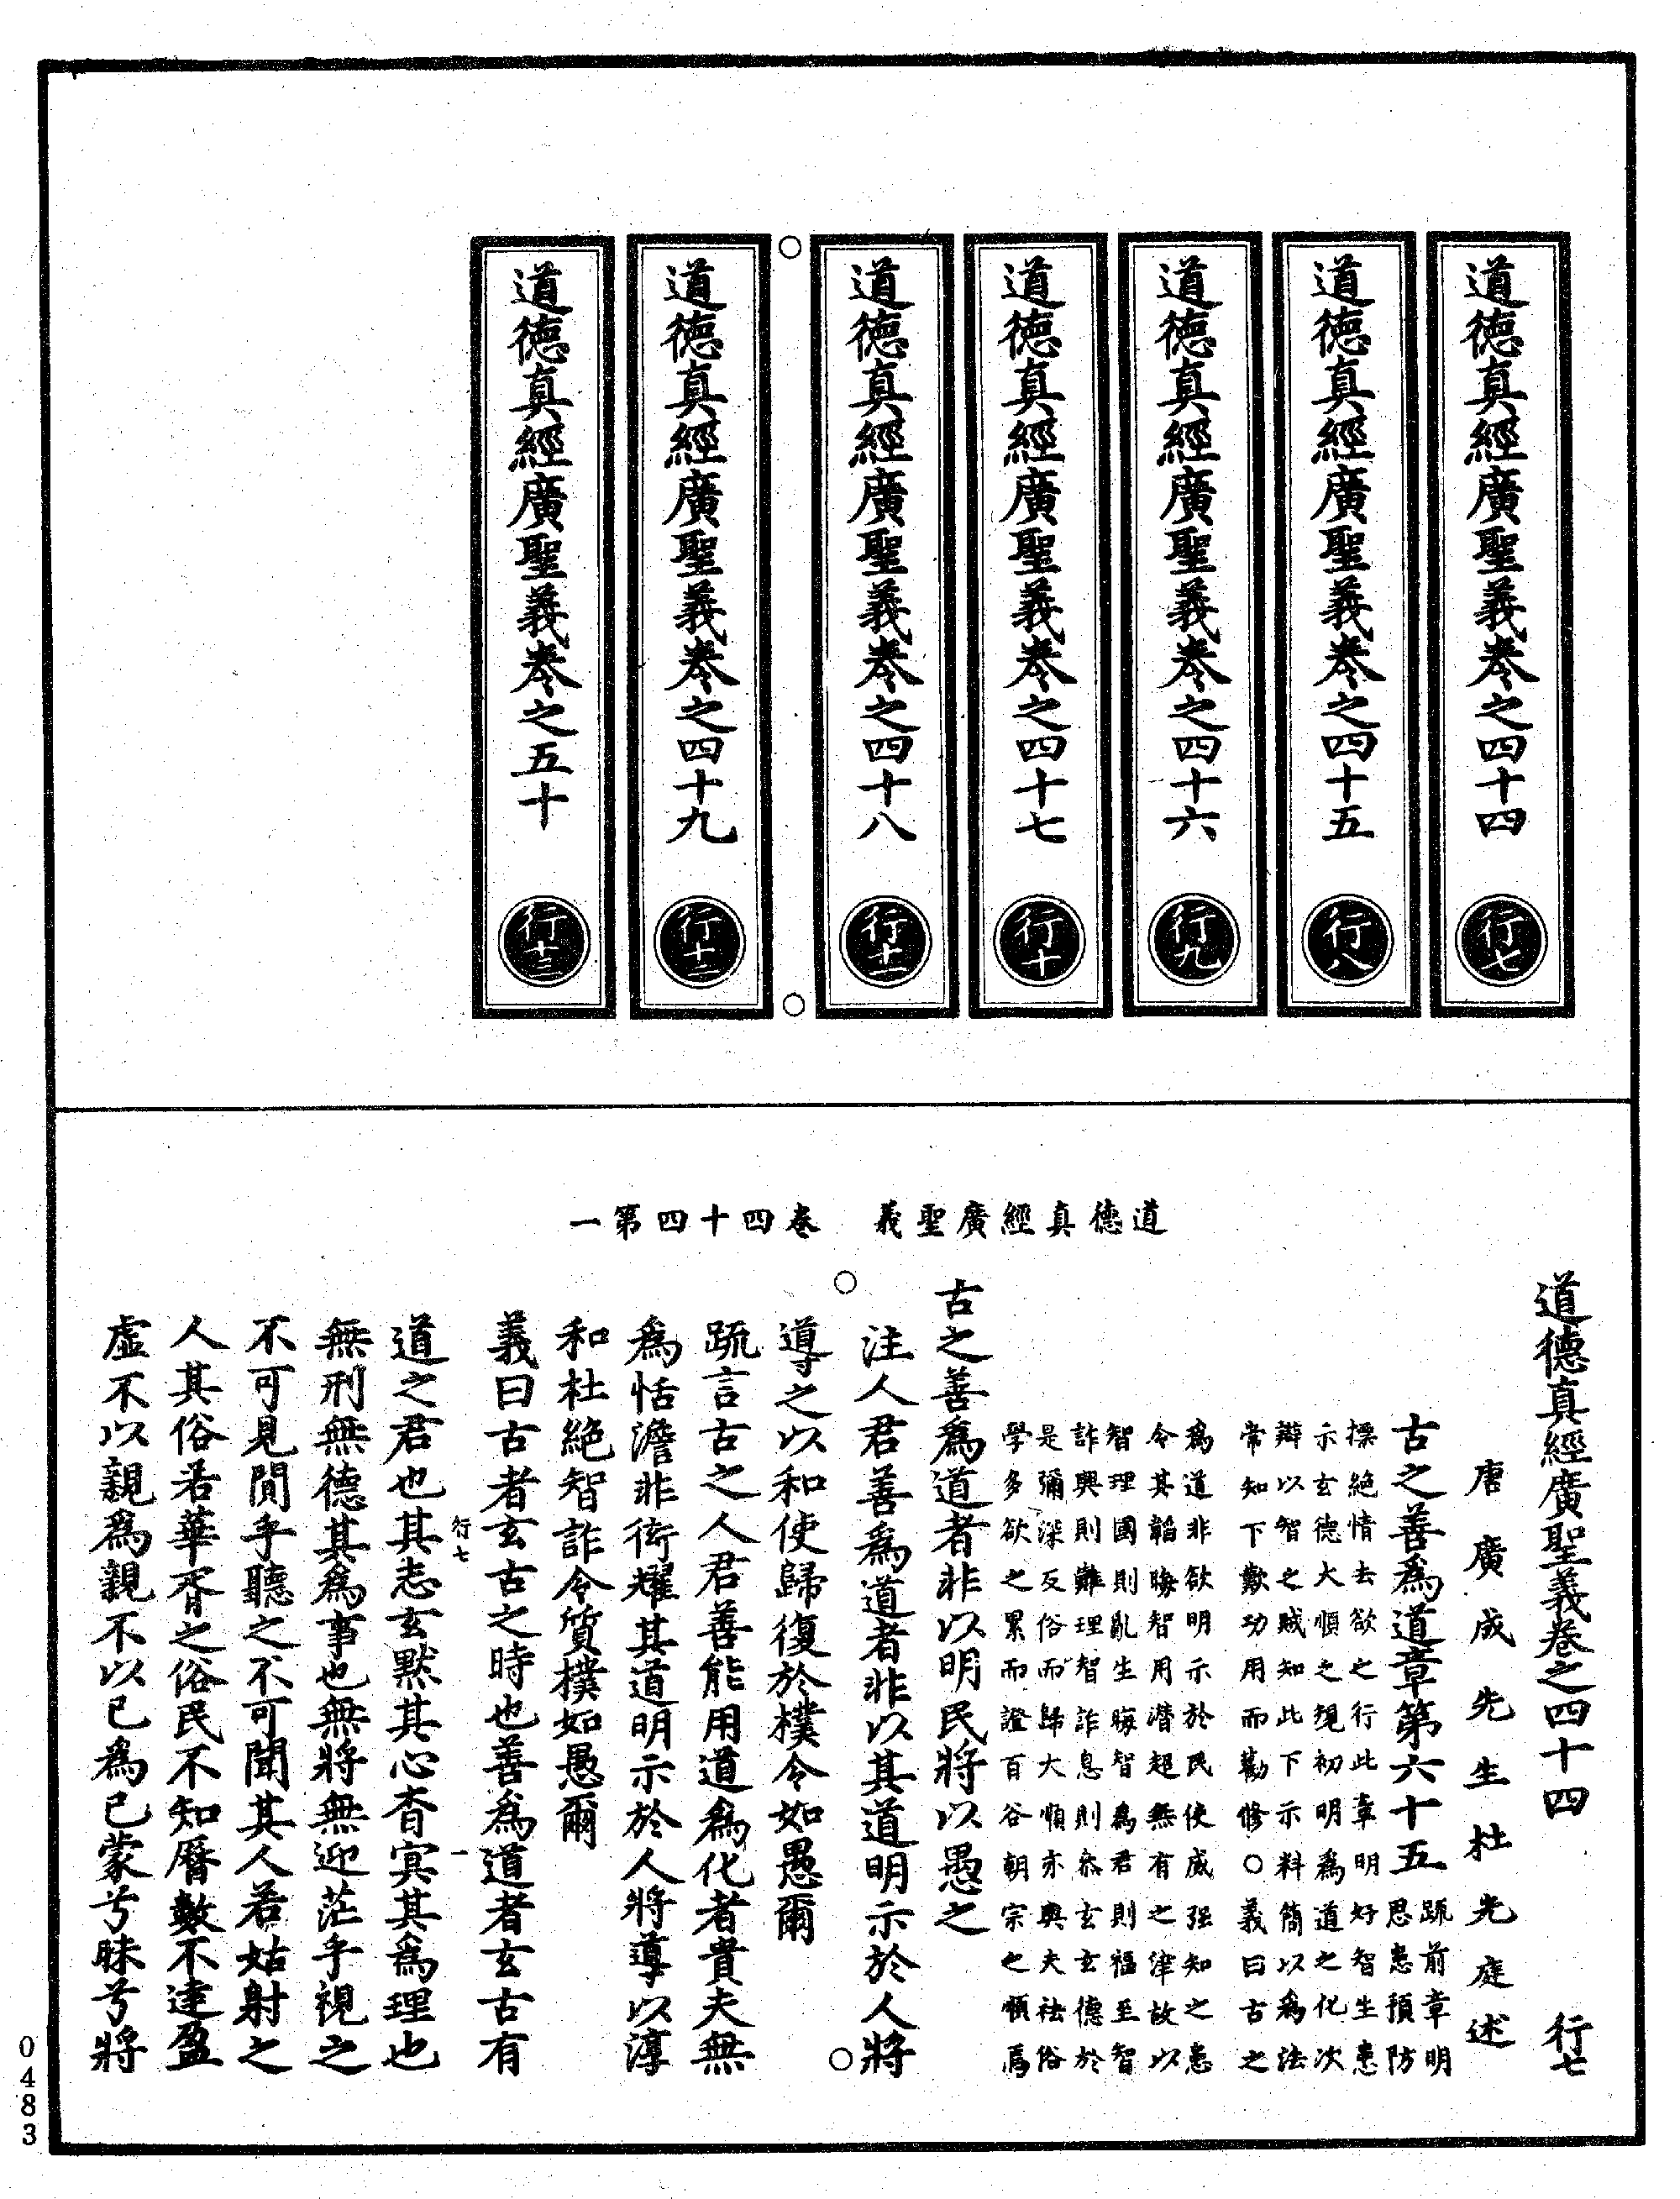 道德真經廣聖義卷之四十四 行七
道德真經廣聖義卷之四十五 行八
道德真經廣聖義卷之四十六 行九
道德真經廣聖義卷之四十七 行十
道德真經廣聖義卷之四十八 行十一
道德真經廣聖義卷之四十九 行十二
道德真經廣聖義卷之五十 行十三
道德真經廣聖義　卷四十四第一
道德真經廣聖義卷之四十四　行七
唐廣成先生杜光庭述
古之善為道章第六十五
疏前章明
思患預防
摽絕情去欲之行此章明好智生患
示玄德大順之規初明為道之化次
辯以智之賊知此下示料簡以為法
常知下歎功用而勸修○義曰古之
為道非欲明示於民使威强知之患
令其韜晦智用潜超無有之津故以
智理國則亂生晦智為君則福至智
詐興則難理智詐息則叅玄玄德於
是彌深反俗而歸大順亦與夫祛俗
學多欲之累而證百谷朝宗之順焉
古之善為道者非以明民將以愚之
注人君善為道者非以其道明示於人將
導之以和使歸復於樸令如愚爾
疏言古之人君善能用道為化者貴夫無
為恬澹非衒耀其道明示於人將導以淳
和杜絕智詐令質樸如愚爾
義曰古者玄古之時也善為道者玄古有
行七　一
道之君也其志玄默其心杳冥其為理也
無刑無德其為事也無將無迎茫乎視之
不可見閒乎聽之不可聞其人若姑射之
人其俗若華胥之俗民不知曆數不達盈
虛不以親為親不以已為已蒙兮昧兮將
0483